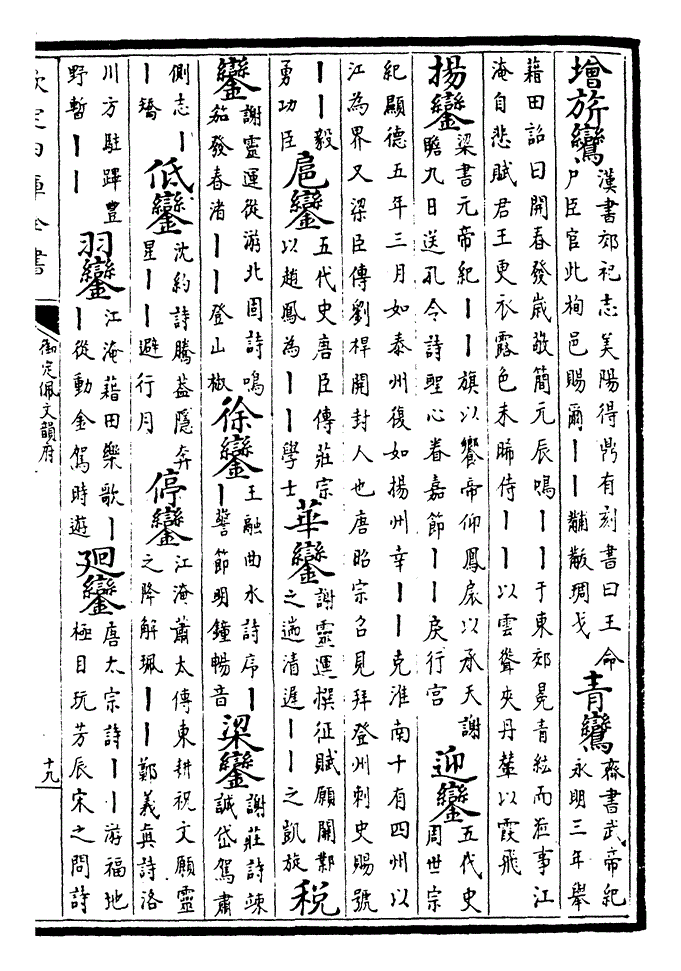 增旂鸞
漢書郊祀志美陽得鼎有刻書曰王命
尸臣官此栒邑賜爾丨丨黼黻琱戈
青鸞
齊書武帝紀
永明三年舉
藉田詔曰開春發歲敬簡元辰鳴丨丨于東郊冕青紘而涖事江
淹自悲賦君王更衣露色未晞侍丨丨以雲聳夾丹輦以霞飛
揚鑾
梁書元帝紀丨丨旗以饗帝仰鳳扆以承天謝
瞻九日送孔令詩聖心眷嘉節丨丨戾行宫
迎鑾
五代史
周世宗
紀顯德五年三月如泰州復如揚州幸丨丨克淮南十有四州以
江為界又梁臣傳劉捍開封人也唐昭宗召見拜登州刺史賜號
丨丨毅
勇功臣
扈鑾
五代史唐臣傳莊宗
以趙鳳為丨丨學士
華鑾
謝靈運撰征賦願關鄴
之遄清遲丨丨之凱旋
税
鑾
謝靈運從游北固詩鳴
笳發春渚丨丨登山椒
徐鑾
王融曲水詩序丨
丨警節明鐘暢音
梁鑾
謝莊詩竦
誠岱駕肅
側志丨
丨矯
低鑾
沈約詩騰葢隱奔
星丨丨避行月
停鑾
江淹蕭太傅東耕祝文願靈
之降解珮丨丨鄭義真詩洛
川方駐蹕豐
野暫丨丨
羽鑾
江淹藉田樂歌丨
丨從動金駕時遊
廻鑾
唐太宗詩丨丨游福地
極目玩芳辰宋之問詩
欽定四庫全書
御定佩文韻府
十九